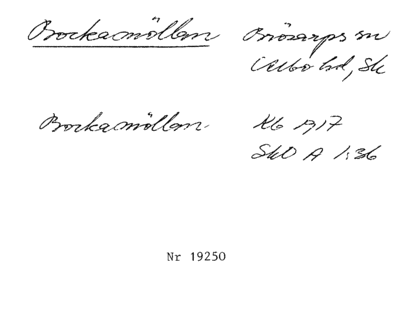 Brockamöllan Brösarps sn
Albo hd, Sk
Brockamöllan Kb 1917
SkO A 1:36
Nr 19250